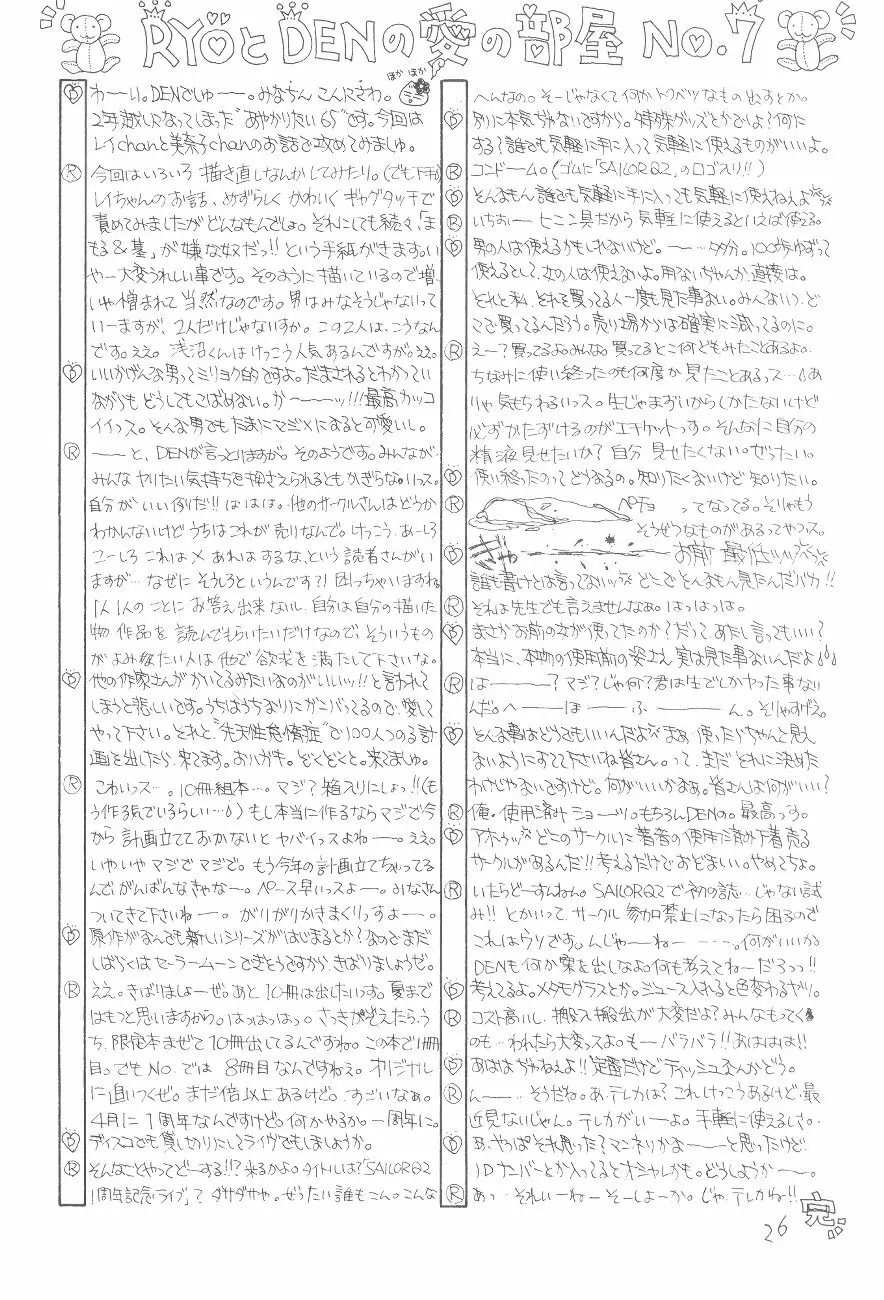 RYOとDENの愛の部屋 NO.7
ほか ほか
D わーい。DENでしゅー。みなちん こんにさわ。
2年越しになってしまった"あやかりたい65"です。今回は
レイchanと美奈子chanのお話で攻めてみましゅ。
R 今回はいろいろ 描き直しなんかしてみたり。(でも下手)
レイちゃんのお話、めずらしく かわいく ギャグタッチで
責めてみましたが どんなもんでしょ。それにしても続々、「ま
もる&基」が嫌な奴だっ!! という手紙がきます。い
やー大変うれしい事です。そのように描いているので増、
いや憎まれて 当然なのです。男はみなそうじゃないって
いーますが、2人だけじゃないすか。この2人は、こうなん
です。ええ。浅沼くんはけっこう人気あるんですが。ええ。
D いいかげんな男ってミリョク的ですよ。だまされるとわかってい
ながらも どうしてもこばめない。かーーッ!!!最高カッコ
イイっス。そんな男でもたまにマジメになると可愛いし。
R ーーと、DENが言っとりますが。そのようです。みんなが
みんな ヤリたい気持ちを押さえられるともかぎらな。いっス。
自分がいい例だ!! ははは。他のサークルさんはどうか
わかんないけど うちはこれが売りなんで。けっこう、あーしろ
こーしろ これは× あれはするな、という読者さんがい
ますが…なぜに そうしろというんです?! 困っちゃいますね。
1人1人のことに お答え出来ないし、自分は自分の描いた
物 作品を 読んでもらいたいだけなので、そういうもの
がよみたい人は 他で欲求を満たして下さいな。
D 他の作家さんがかいてるみたいなのがいいッ!!と言われて
しまうと悲しいです。うちはうちなりにガンバってるので、愛して
やって下さい。それと"先天性怠惰症"で100人つのる計
画を出したら、来てます。おハガキ。どくどくと。来てましゅ。
R こわいっス…。10冊組本…。マジ?箱入りにしょっ!!(も
う作る気でいるらしい…) もし本当に作るならマジで今
から 計画立てておかないと ヤバイっスよねー。ええ。
いやいや マジで マジで。もう今年の計画立てちゃってる
んで がんばんなきゃなー。ペース早いっスよー。みなさん
ついてきて下さいねー。がりがりかきまくりっすよー。
D 原作がなんでも新しいシリーズがはじまるとか?なのでまだ
しばらくはセーラームーンできそうですから、きばりましょうぜ。
R ええ。きばりましょーぜ。あと 10冊は出したいっす。夏まで
はもつと思いますから。はっはっはっ。さっきかぞえたら、う
ち、限定本まぜて10冊出してるんですね。この本で11冊
目。でもNO.では 8冊目なんですねえ。オリジナル
に追いつくぜ。まだ倍以上あるけど。すごいなぁ。
4月に1周年なんですけど。何かやるか。一周年に。
D ディスコでも貸しきりにしてライヴでもしましょうか。
R そんなことやってどーする!!?来るかよ。タイトルは?「SAILORQ2
1周年記念ライブ」? ダサダサや。ぜったい誰もこん。こんな
へんなの。そーじゃなくて何かトクベツなもの出すとか。
D 別に本気ぢゃないですから。特殊グッズとかでしょ?何に
する?誰でも気軽に手に入って気軽に使えるものがいいよ。
R コンドーム。(ゴムに「SAILORQ2」のロゴ入り!!)
D そんなもん 誰でも気軽に手に入っても気軽に使えねえよ
R いちおー ヒニン具だから 気軽に使えるといえば使える。
D 男の人は使えるかもしれないけど。ー…多分。100歩ゆずって
使えるとして、女の人は使えないよ。用ないぢゃんか、直接は。
それと私、それを買ってる人一度も見た事ない。みんないつ、ど
こで買ってるんだろう。売り場からは確実に減ってるのに。
R えー?買ってるよ。みんな。買ってるとこ何どもみたことあるよ。
ちなみに使い終ったのも何度か見たことあるっス…あ
りゃ気もちわるいっス。生じゃまずいからしかたないけど
必ずかたずけるのがエチケットっす。そんなに自分の
精液見せたいか?自分見せたくない。ぜったい。
D 使い終ったのってどうなるの。知りたくないけど知りたい。
R ペチョ ってなってる。そりゃもう
そうぜつなものがあるってやつっス。
D ぎゃ お前 最低ッッ
誰も書けとは言ってないッ どこでそんなもん見たんだバカ!!
R それは先生でも言えませんなぁ。はっはっは。
D まさかお前の女が使ってたのか?だって、あたし言ってもいい?
本当に、本物の使用前の姿さえ 実は見た事ないんだよ
R はーー?マジ?じゃ何?君は生でしかヤった事ない
んだ。へーーほーーふーーん。そりゃすげえ。
D そんな事はどうでもいいんだよ まぁ、使ったらちゃんと見え
ないようにすてて下さいね皆さん。って、まだそれに決めた
わけじゃないですけど。何がいいかなぁ。皆さんは何がいい?
R 俺・使用済みショーツ。もちろんDENの。最高っす。
D アホゥッ どこのサークルに著者の使用済み下着売る
サークルがあるんだ!!考えるだけでおどましい。やめてちょ。
R いたらどーすんねん。SAILORQ2で初の誌…じゃない試
み!!とかいって サークル参加禁止になったら困るので
これはウソです。んじゃーねー…。何がいいかな
DENも何か案を出しなよ。何も考えてねーだろっっ!!
D 考えてるよ。メタモグラスとか。ジュース入れると色変わるヤツ。
R コスト高いし、搬入搬出が大変だよ?みんなもってく
のも…われたら大変っスよ。もーバラバラ!!おははは!!
D あははぢゃねえよ!!定番だけどティッシュなんかどう。
R んー… そうだね。あ、テレカは?これけっこうあるけど、最
近見ないじゃん。テレカがいーよ。手軽に使えるしさ。
D あ、やっぱそれ思った?マンネリかなーーと思ったけど
IDナンバーとか入ってるとオシャレかも。どうしようかー。
R あっ…それいーねーそーしよーか。じゃ、テレカね!!
完
26